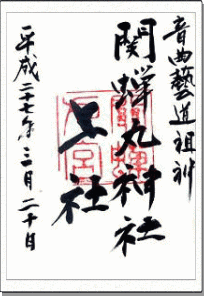 音曲藝道祖神
関蝉丸神社
上社
平成二十七年三月二十日